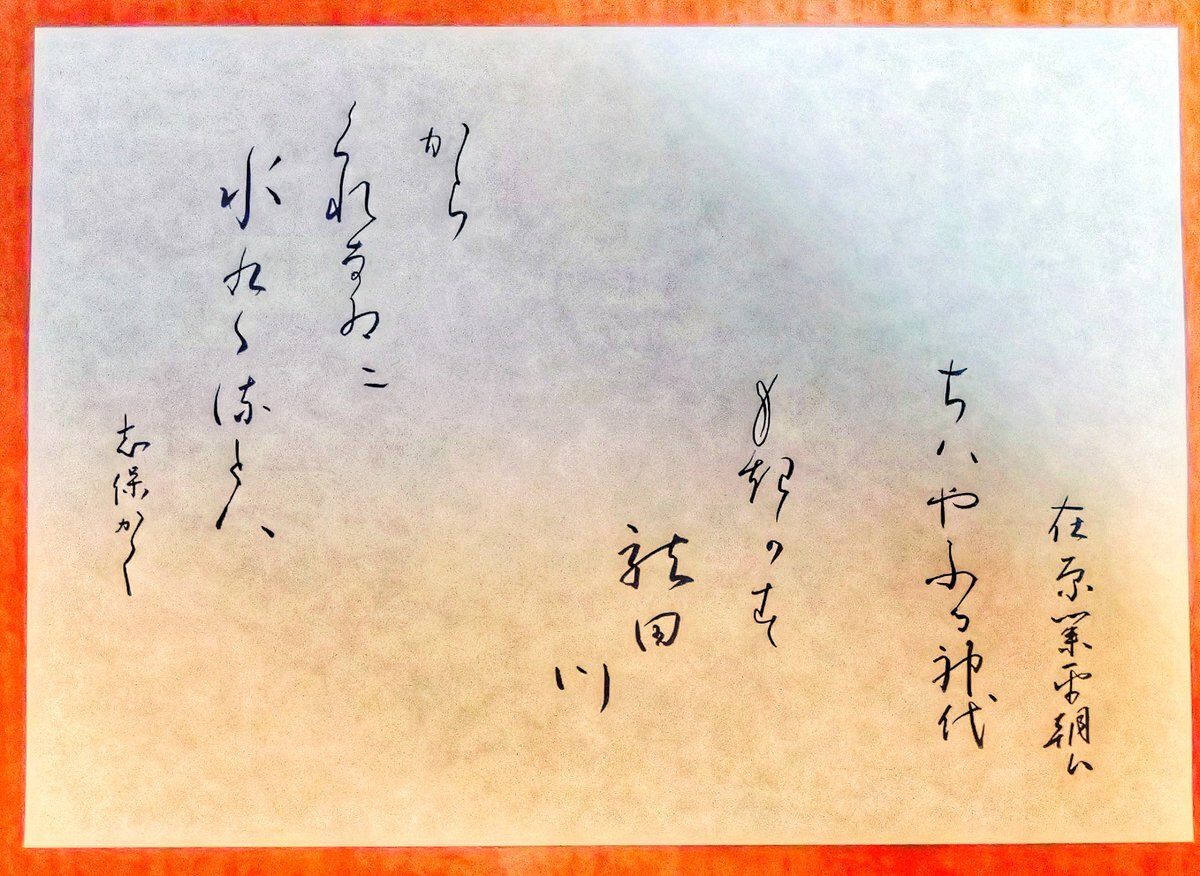 在原業平朝臣
ちハやふる神代
も起かす
龍田
川
から
くれなゐニ
水九く流とハ
志保かく